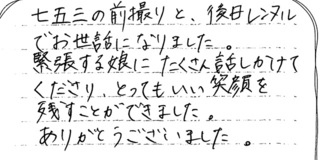 七五三の前撮りと、後日レンタル
でお世話になりました。
緊張する娘にたくさん話しかけて
くださり、とってもいい笑顔を
残すことができました。
ありがとうございました。